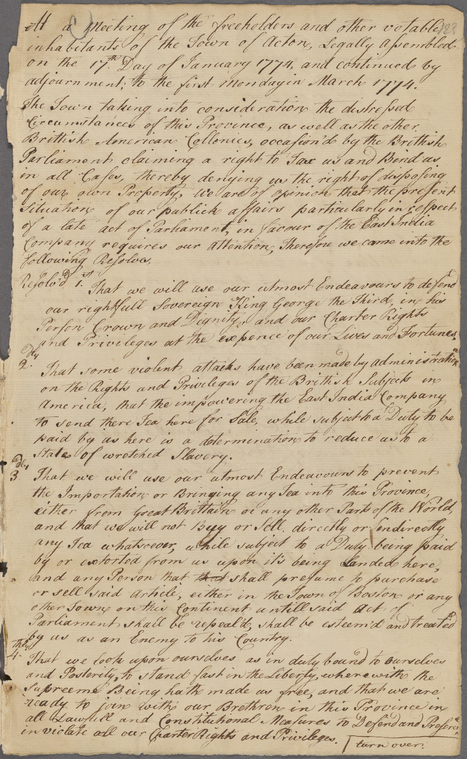 At a Meeting of the freeholders and other votable
inhabitants of the Town of Acton, Legally Assembled
on the 17th Day of January 1774, and continued by
adjournment, to the first monday in March 1774.
The Town taking into consideration the distressed
Circumstances of this Province, as well as the other
Brittish American Collonies, occasiond by the Brittish
Parliament claiming a right to Tax us and Bend us
in all Cases, thereby denying us the right of disposing
of our own Property, We are of opinion that the present
situation of our publick affairs particularly in respect
of a late act of Parliament, in favour of the East India
Company requires our attention, Therefore we came into the
following Resolves,
Resolv'd 1st That we will use our utmost Endeavours to defend
our rightfull Sovereign King George the Third, in his
Person Crown and Dignity, and our Charter Rights
and Privileges at the expence of our Lives and Fortunes
2ly
That some violent attacks have been made by administration
on the Rights and Privileges of the British Subjects in
America, that the impowering the East India Company
to send there Tea here for Sale, while subject to a Duty to be
paid by us here is a determination to reduce us to a
State of wretched Slavery.
3dly
That we will use our utmost Endeavours to prevent
the Importation or Bringing any Tea into this Province,
either from Great Brittain or any other Part of the World,
and that we will not Buy or Sell, directly or Indirectly
any Tea whatsoever, while subject to a Duty being paid
by or extorted from us upon it's being Landed here,
and any Person that shall presume to purchase
or sell said Article, either in the Town of Boston or any
other Town on this Continent untill said act of
Parliament shall be repeald, shall be esteem'd and treated
by us as an Enemy to his Country.
4thly
That we look upon ourselves as in duty bound to ourselves
and Posterity, to stand fast in the Liberty, wherewith the
Supreeme Being hath made us free, and that we are
ready to join with our Brethren in this Province in
all Lawfull and Constitutional Measures to Defend and Preserve
in violate all our Charter Rights and Privileges.
turn over.